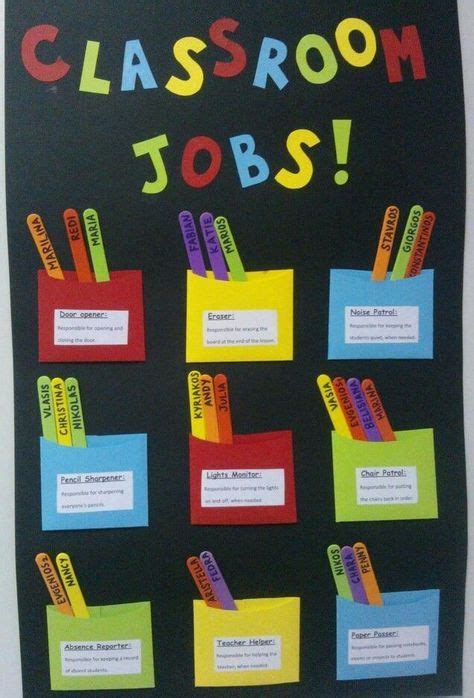 CLASSROOM
JOBS!
MARILINA
REDI
MARIA
FABIAN
KATIE
MARIOS
STAVROS
GIORGOS
KONSTANTINOS
Door opener:
Responsible for opening and
closing the door.
Eraser:
Responsible for erasing the
board at the end of the lesson.
Noise Patrol:
Responsible for keeping the
students quiet, when needed.
VLASIS
CHRISTINA
NIKOLAS
KYRIAKOS
ANDY
JULIA
VASIA
EVGENIOS
MARINA
Pencil Sharpener:
Responsible for sharpening
everyone's pencils.
Lights Monitor:
Responsible for turning the lights
on and off, when needed.
Chair Patrol:
Responsible for putting
the chairs back in order.
EVGENIOS2
NANCY
ARISTELLA
FEDRA
NIKOS
CHARA
PENNY
Absence Reporter:
Responsible for keeping a record
of absent students.
Teacher Helper:
Responsible for helping the
teacher, when needed.
Paper Passer:
Responsible for passing notebooks,
exams or projects to students.